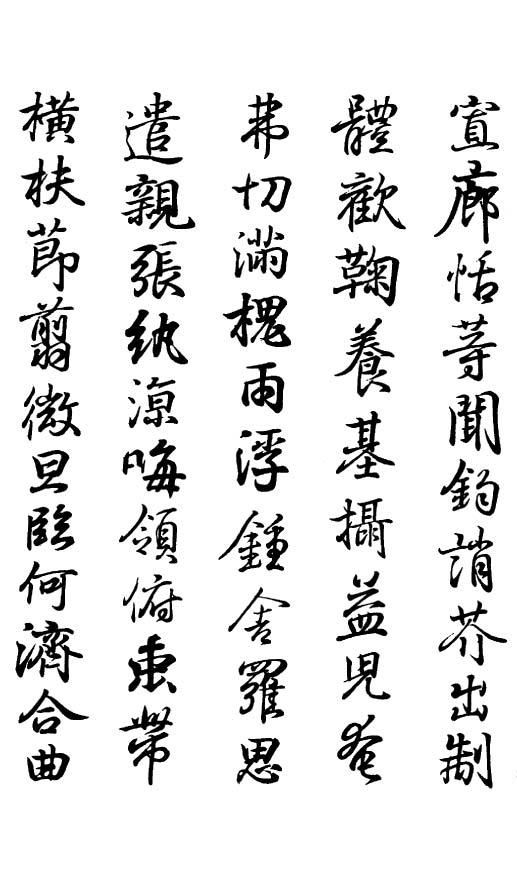 宣廊恬等聞鈞誚芥出制
體歡鞠養基攝益兒奄
弗切滿槐雨浮鍾舍羅思
遣親張紈涼晦領俯帶
橫扶節翦微旦臨何濟合曲